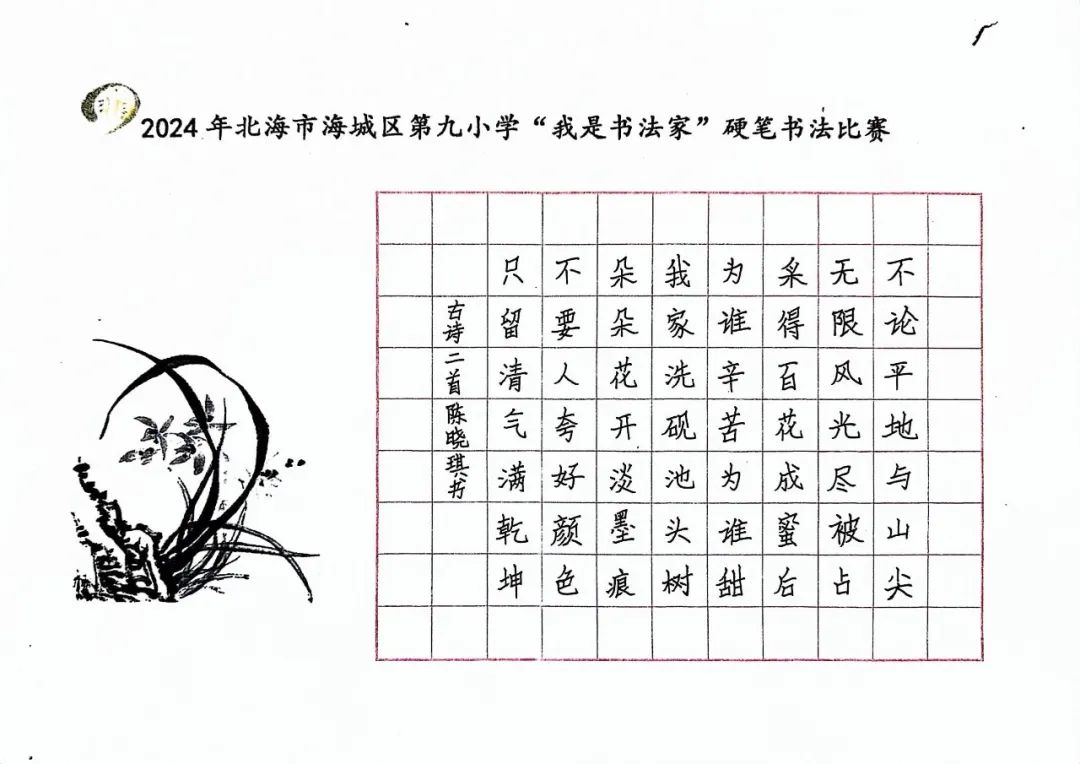 2024年北海市海城区第九小学“我是书法家”硬笔书法比赛
不论平地与山尖
无限风光尽被占
采得百花成蜜后
为谁辛苦为谁甜
我家洗砚池头树
朵朵花开淡墨痕
不要人夸好颜色
只留清气满乾坤
古诗二首陈晓琪书